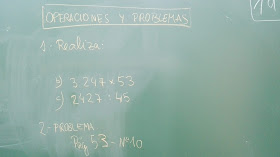 OPERACIONES Y PROBLEMAS
1- Realiza:
b) 3.247 x 53
c) 2427 : 45
2- PROBLEMA
Pág 53 - Nº 10